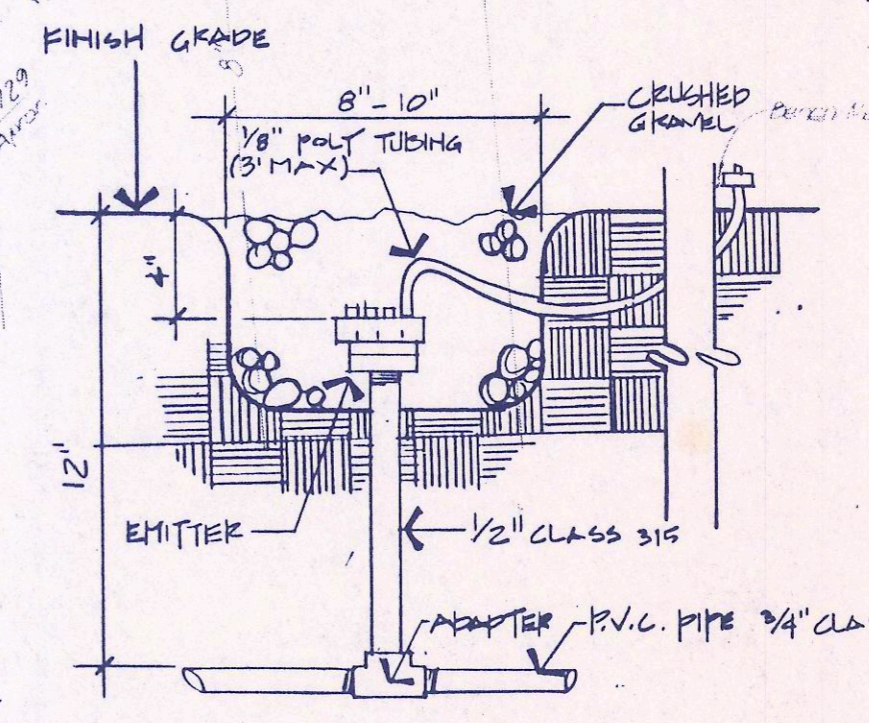 FINISH GRADE
8"-10"
CRUSHED
GRAVEL
1/8" POLY TUBING
(3' MAX)
4"
12"
EMITTER
1/2" CLASS 315
ADAPTER
P.V.C. PIPE 3/4" CLA